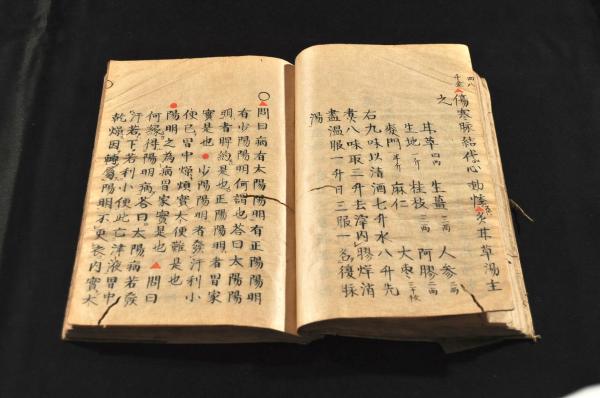 四八
千金
傷寒脉結代心動悸炙甘草湯主
之
甘草四两 生薑三两 人参二两
生地一斤 桂枝三两 阿膠二两
麥門半斤 麻仁 大棗三十枚
右九味以清酒七升水八升先
煑八味取三升去滓內膠烊消
盡温服一升日三服一名復脉
湯
問曰病有太陽陽明有正陽陽明
有少陽陽明何謂也答曰太陽陽
明者脾約是也正陽陽明者胃家
實是也 少陽陽明者發汗利小
便已胃中燥煩實大便難是也
陽明之為病胃家實是也 問曰
何緣得陽明病答曰太陽病若發
汗若下若利小便此亡津液胃中
乾燥因轉屬陽明不更衣內實大